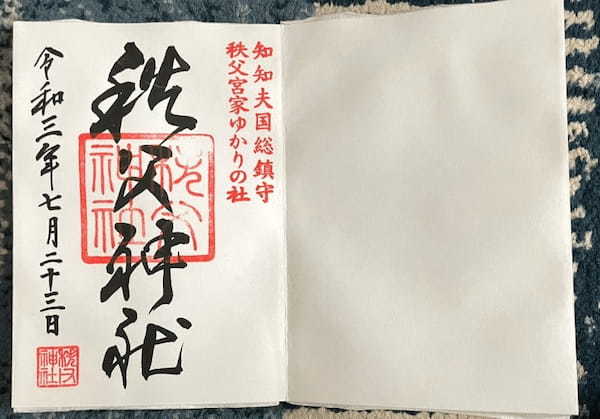 知知夫国総鎮守
秩父宮家ゆかりの社
秩父神社
秩父神社
令和三年七月二十三日
秩父神社